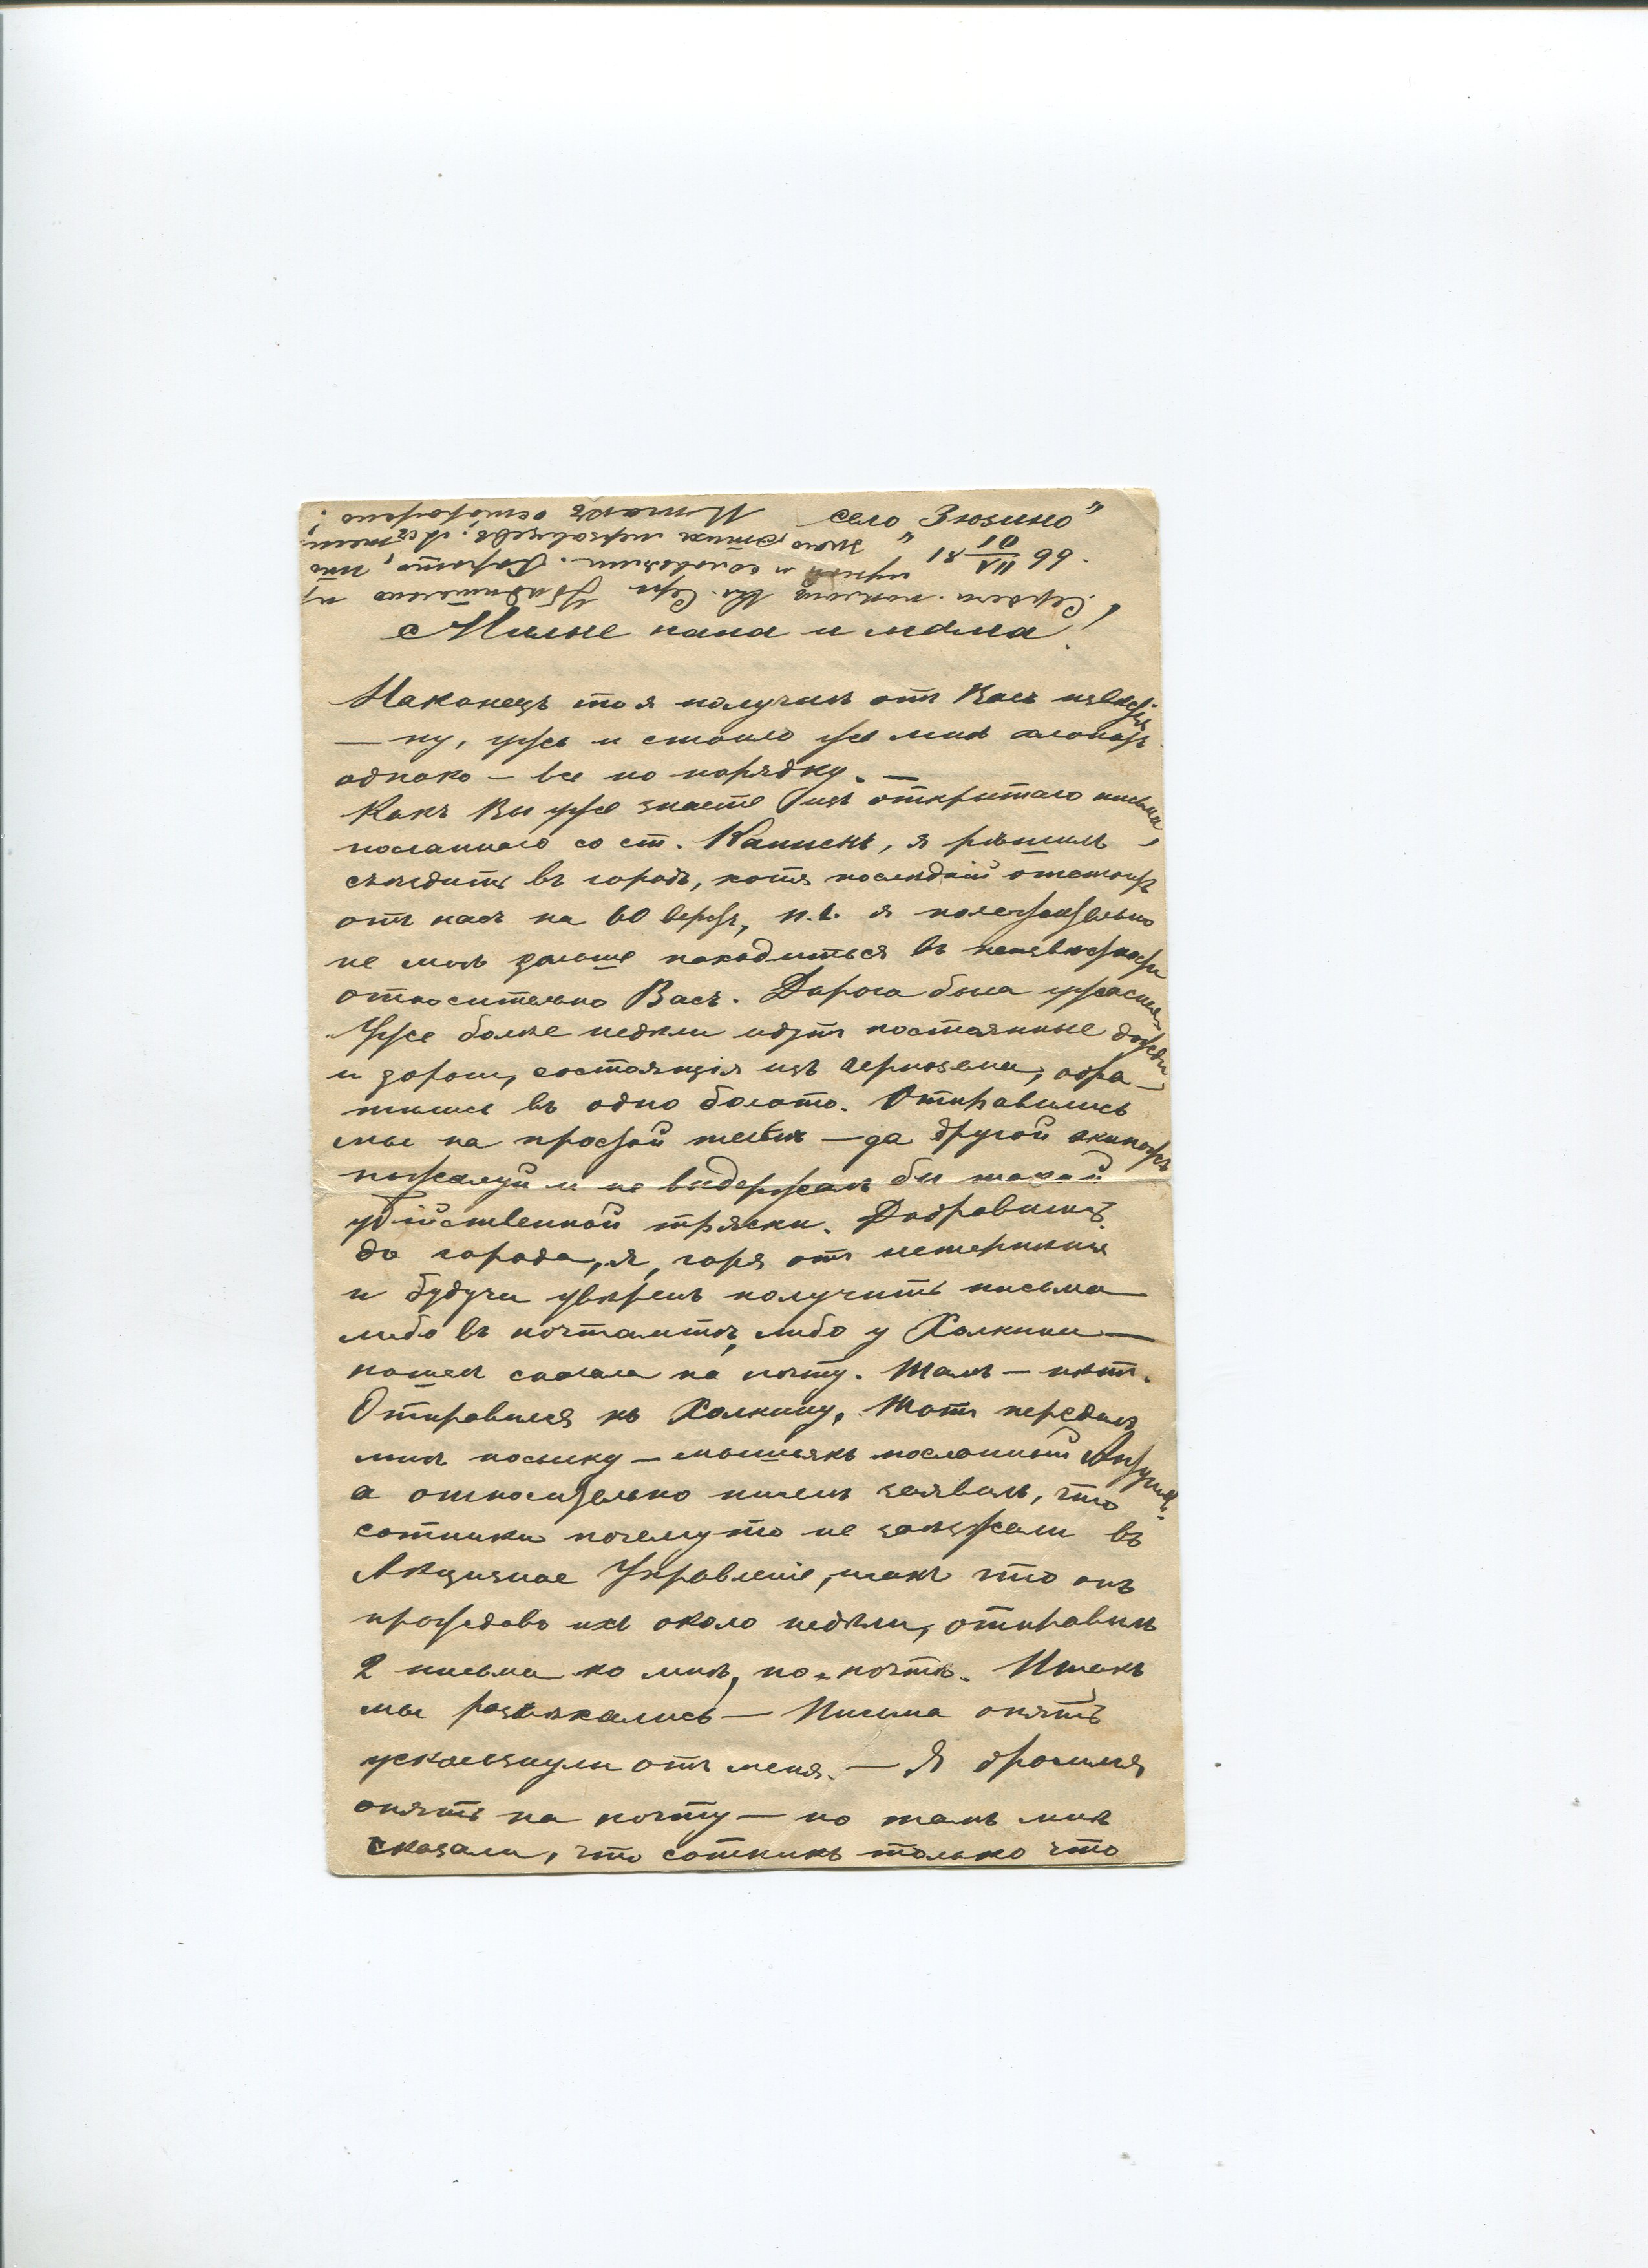 село „Зюзино"
18 10/VII 99.
Милые папа и мама!
Наконецъ то я получилъ отъ Васъ извѣстія
— ну, ужъ и стоило же мнѣ хлопотъ
однако — все по порядку. —
Какъ Вы уже знаете изъ открытаго письма,
посланнаго со ст. , я рѣшилъ
съѣздить въ городъ, хотя послѣдній отстоитъ
отъ насъ на 60 верстъ, п. ч. я положительно
не могъ дольше находиться въ неизвѣстности
относительно Васъ. Дорога была ужасная.
Уже болѣе недѣли идутъ постоянные дожди
и дороги, состоящія изъ чернозема, обра-
тились въ одно болото. Отправились
мы на простой телѣгѣ — да другой экипажъ
пожалуй и не выдержалъ бы такой
убійственной тряски. Добравшись
до города, я, горя отъ нетерпѣнія
и будучи увѣренъ получить письма
либо въ почтамтѣ, либо у Халкина —
пошелъ сначала на почту. Тамъ — нѣтъ.
Отправился къ Халкину. Тотъ передалъ
мнѣ посылку — мышьякъ посланный
а относительно писемъ заявилъ, что
сотники почему то не заѣзжали въ
Акцизное Управленіе, такъ что онъ
прождавъ ихъ около недѣли, отправилъ
2 письма ко мнѣ, по почтѣ. Итакъ
мы разъѣхались — Письма опять
ускользнули отъ меня. — Я бросился
опять на почту — но тамъ мнѣ
сказали, что сотникъ только что
Сердечн. поклонъ Ал. Серг. Убѣдительно
и соловьями. Хорошо, что
этихъ мерзавцевъ.
Итакъ осторожно!